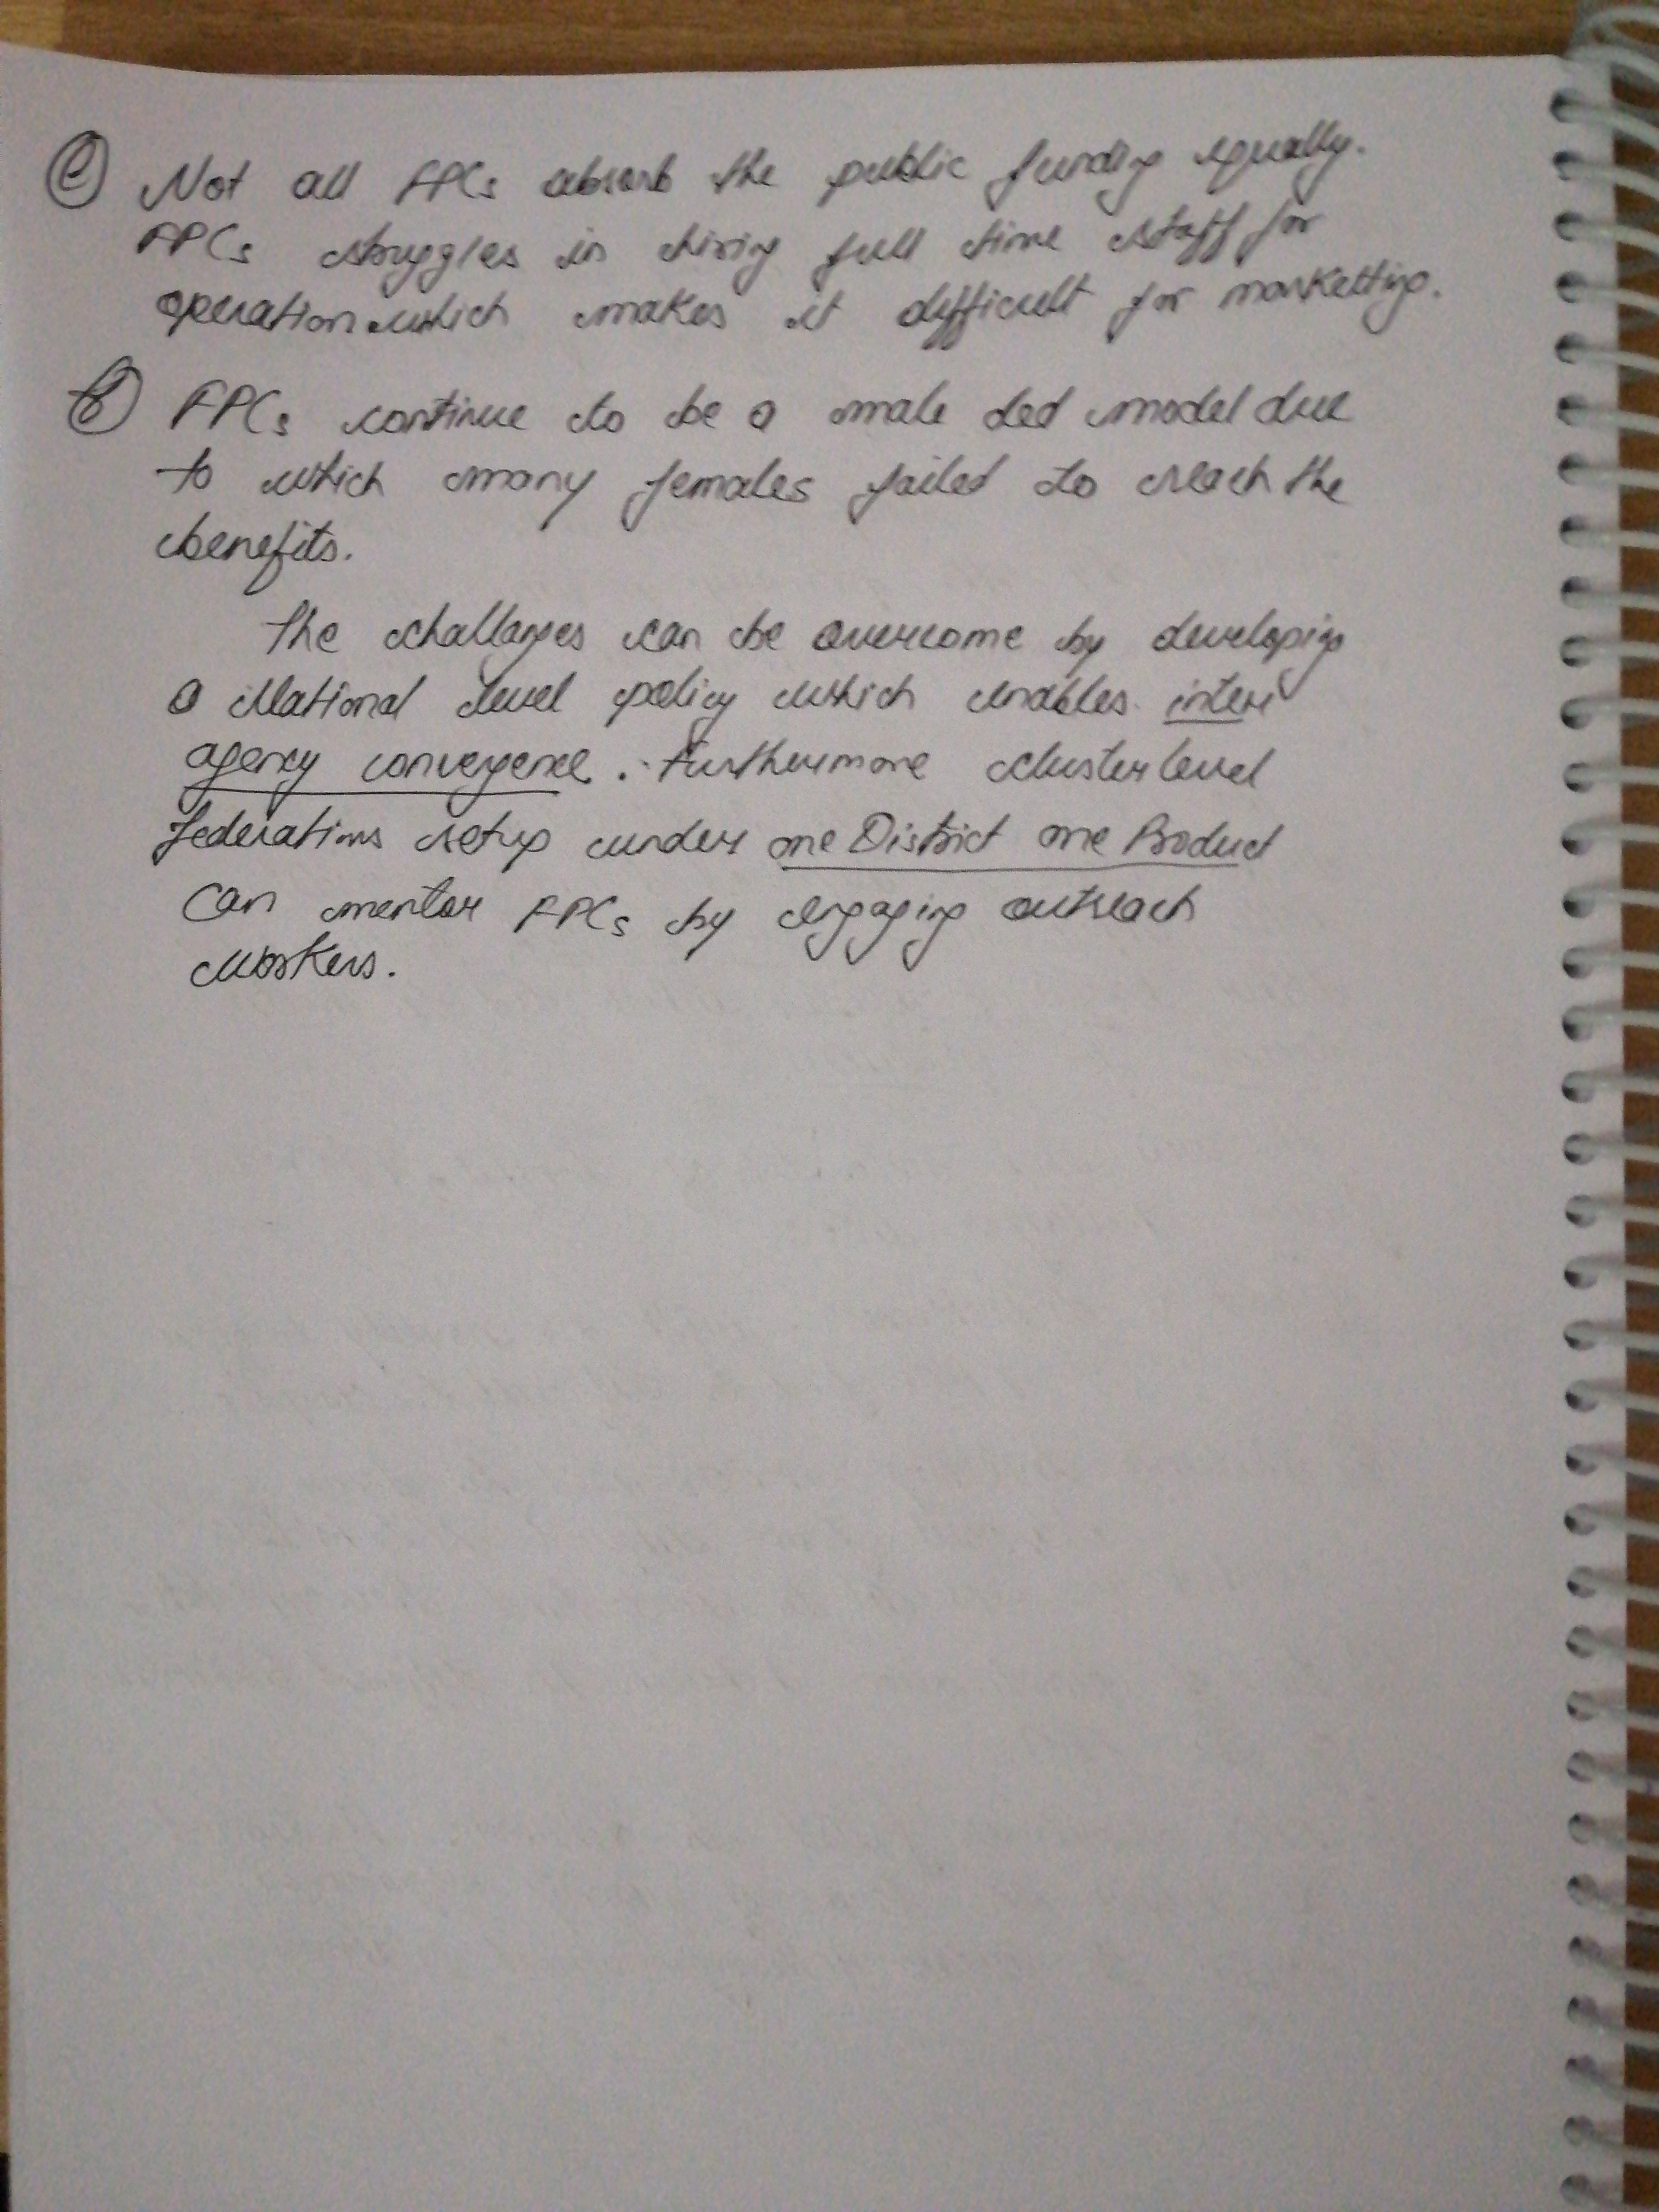 (e) Not all FPCs absorb the public funding equally.
FPCs struggles in hiring full time staff for
operation which makes it difficult for marketting.
(f) FPCs continue to be a male led model due
to which many females failed to reach the
benefits.
The challanges can be overcome by developing
a National level policy which enables inter
agency convergence. Furthermore cluster level
federations setup under one District one Product
can mentor FPCs by engaging outreach
workers.